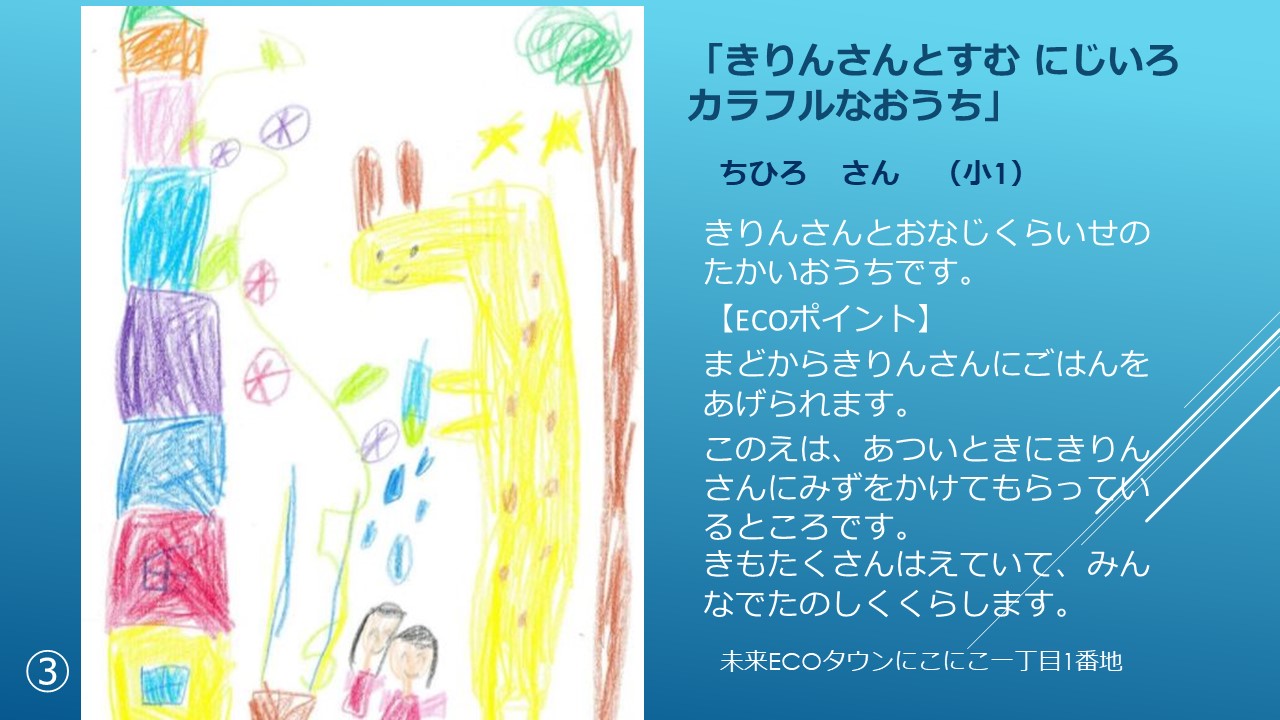 「きりんさんとすむ にじいろ
カラフルなおうち」
ちひろ さん （小1）
きりんさんとおなじくらいせの
たかいおうちです。
【ECOポイント】
まどからきりんさんにごはんを
あげられます。
このえは、あついときにきりん
さんにみずをかけてもらってい
るところです。
きもたくさんはえていて、みん
なでたのしくくらします。
未来ECOタウンにこにこ一丁目1番地
③